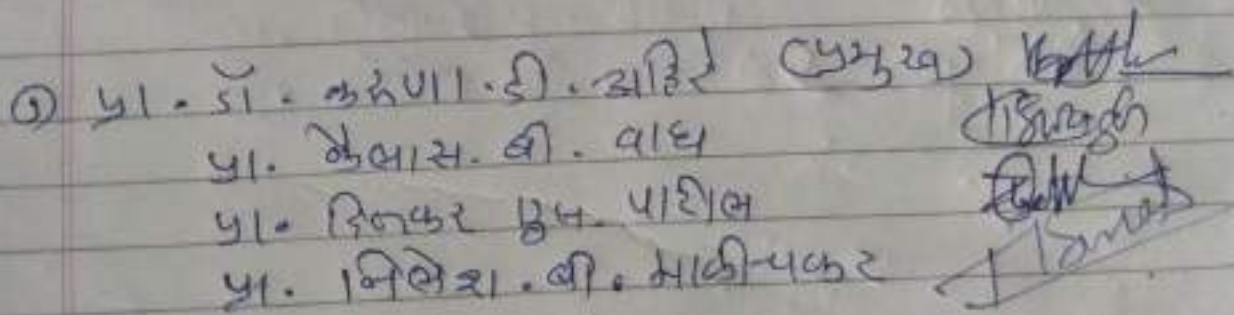 ① प्रा. डॉ. करुणा. डी. अहिरे (प्रमुख)
प्रा. कैलास. बी. वाघ
प्रा. दिनकर एल. पाटील
प्रा. निलेश. बी.